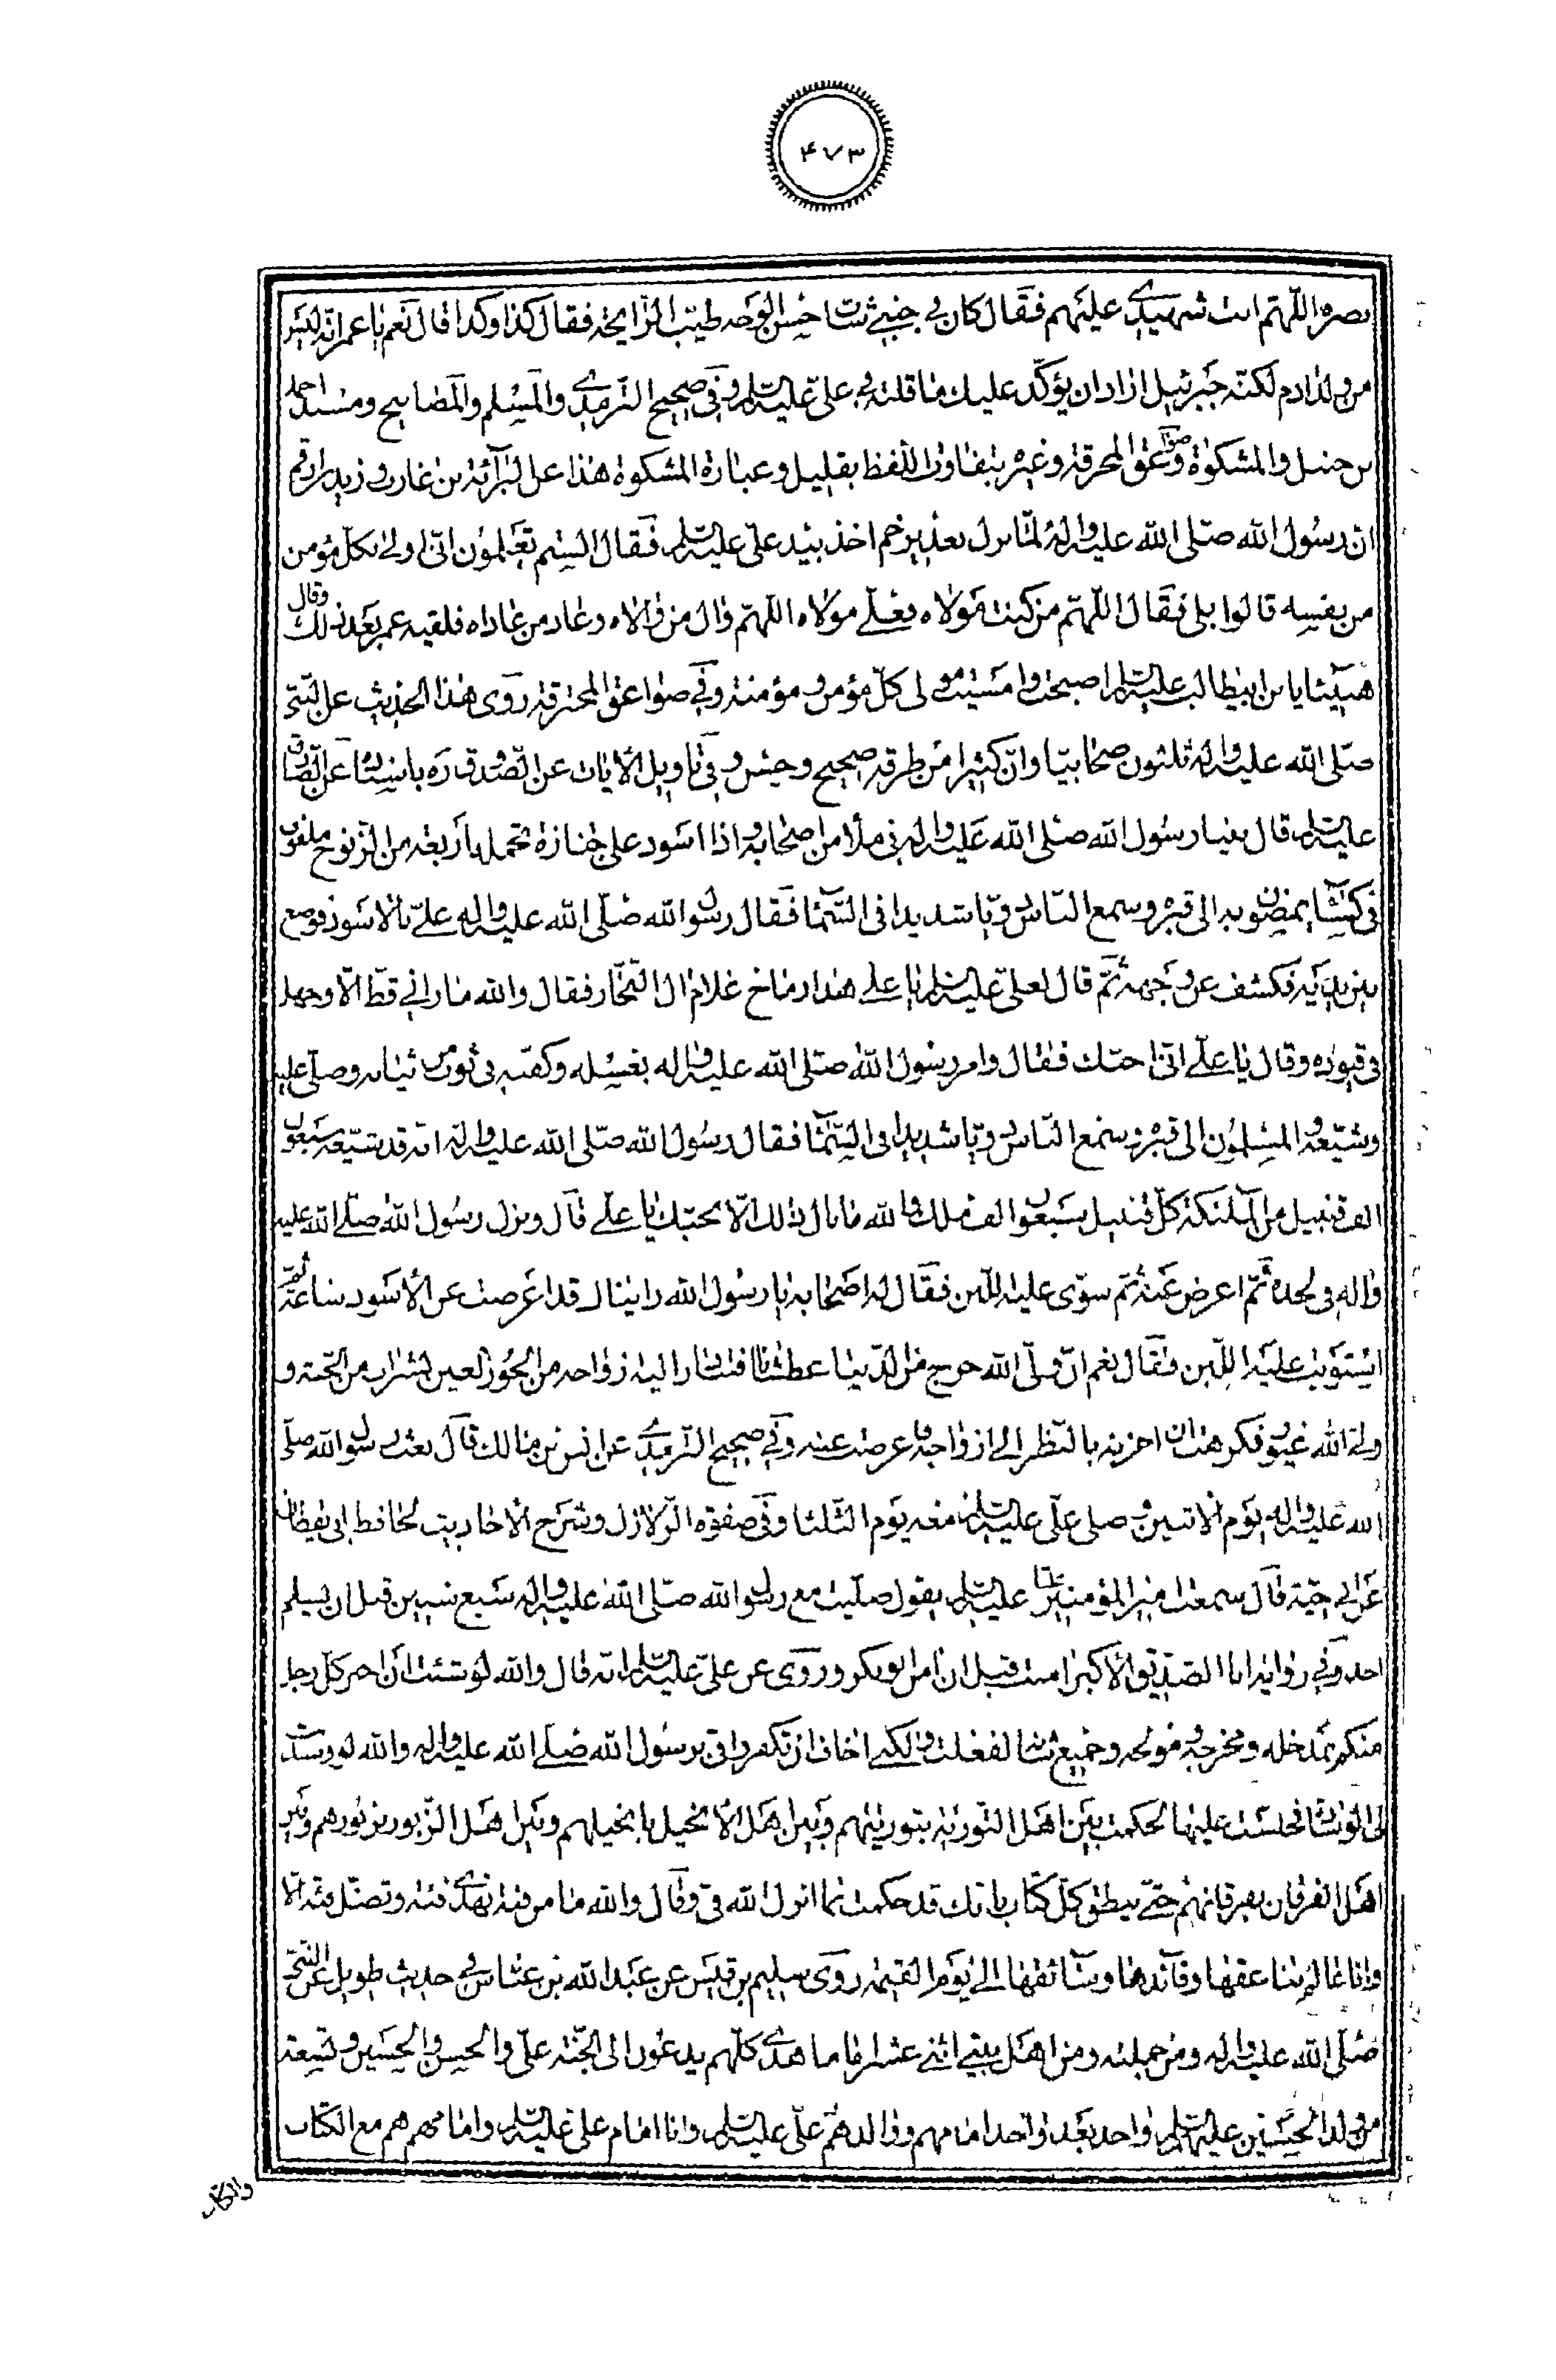 ۴۷۳
نصره اللّهمّ انت شهيدي عليهم فقال كان في جنبي شاب حسن الوجه طيّب الرّايحة فقال كذا وكذا قال نعم يا عمر انّه ليس
من ولد ادم لكنّه جبرئيل اراد ان يؤكّد عليك ما قلته في علىّ عليه السلم وفي صحيح الترمدي والمسلم والمصابيح ومسند احمد
بن حنبل والمشكوة وصواعق المحرقة وغيره بتفاوت اللّفظ بقليل وعبارة المشكوة هذا عن البرآئة بن عازب و زيد بن ارقم
ان رسول الله صلّى الله عليه واله لمّا نزل بغدير خم اخذ بيد علىّ عليه السلم فقال الستم تعلمون انّى اولى بكلّ مؤمن
من نفسه قالوا بلى فقال اللّهمّ من كنت مولاه فعلىّ مولاه اللهمّ وال من والاه وعاد من عاداه فلقيه عمر بعد ذلك وقال
هنيئا يا بن ابيطالب عليه السلم اصبحت وامسيت مولى كلّ مؤمن ومؤمنة وفي صواعق المحرقة روى هذا الحديث عن النّبيّ
صلّى الله عليه واله ثلثون صحابيّا وانّ كثيرا من طرقه صحيح وحسن و في تاويل الأيات عن الصّدوق ره باسناده عن الصّادق
عليه السلم قال بينا رسول الله صلّى الله عليه واله في ملأ من اصحابه واذا اسود على جنازة تحمله اربعة من الزّنوج ملفوف
فى كساء يمضون به الى قبره وسمع النّاس دويّا شديدا فى السّماء فقال رسول الله صلّى الله عليه واله علىّ بالاسود فوضع
بين يديه فكشف عن وجهه ثمّ قال لعلىّ عليه السلم يا على هذا رماح غلام ال النّجّار فقال والله ما رانى قطّ الّا وجهد
في قيوده وقال يا علىّ انّى احبّك فقال وامر رسول الله صلّى الله عليه واله بغسله وكفّنه فى ثوب من ثيابه وصلّى عليه
وشيّعه والمسلمون الى قبره وسمع النّاس دويّا شديدا فى السّماء فقال رسول الله صلّى الله عليه واله انّه قد شيّعه سبعون
الف قبيل من الملئكة كلّ قبيل سبعون الف ملك والله ما نال ذلك الّا بحبّك يا على قال ونزل رسول الله صلّى الله عليه
واله فى لحده ثمّ اعرض عنه ثمّ سوّى عليه اللّبن فقال له اصحابه يا رسول الله رايناك قد اعرضت عن الأسود ساعة ثمّ
استويت عليه اللّبن فقال نعم انّ ولىّ الله خرج من الدّنيا عطشانا فتبادر اليه ازواجه من الحور العين بشراب من الجنّة و
ولىّ الله غيور فكرهت ان احزنه بالنّظر الى ازواجه فاعرضت عنه وفي صحيح الترمدي عن انس بن مالك قال بعث رسول الله صلّى
الله عليه واله يوم الاثنين و صلى علىّ عليه السلم معه يوم الثّلثا وفى صفوة الزّلازل وشرح الأحاديث لحافظ ابى يقظان
عن ابي حيّة قال سمعت امير المؤمنين عليّا عليه السلم يقول صلّيت مع رسول الله صلّى الله عليه واله سبع سنين قبل ان يسلم
احد وفي رواية انا الصّدّيق الأكبر امنت قبل ان امن ابوبكر و روى عن علىّ عليه السلم انّه قال والله لو شئت ان اخبر كلّ رجل
منكم بمدخله ومخرجه ومولجه وجميع شانه لفعلت ولكنّى اخاف ان تكفروا فى برسول الله صلّى الله عليه واله والله لو وسدت
لى الوساد فجلست عليها لحكمت بين اهل التّورية بتوريتهم وبين اهل الأنجيل بانجيلهم وبين اهل الزّبور بزبورهم وبين
اهل الفرقان بفرقانهم حتّى ينطق كلّ كتاب بانك قد حكمت بما انزل الله فىّ وقال والله ما من فئة تهدى فئة وتضلّ فئة الّا
وانا عالم بناعقها وقآئدها وسآئقها الى يوم القيمة روى سليم بن قيس عن عبد الله بن عبّاس في حديث طويل عن النّبىّ
صلّى الله عليه واله ومن جملته ومن اهل بيتى اثنى عشر اماما هدى كلّهم يدعون الى الجنّة علىّ والحسن والحسين وتسعة
من ولد الحسين عليهم السلم واحد بعد واحد امامهم ووالدهم علىّ عليه السلم وانا امام على عليه السلم وامامهم هم مع الكتاب
والكتاب